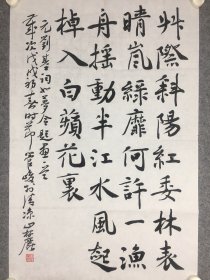 艸際斜陽紅委林表
晴嵐綠靡何許一漁
舟搖動半江水風起
棹入白蘋花裏
元劉基詞如夢令題畫一首
歲次戊戌初